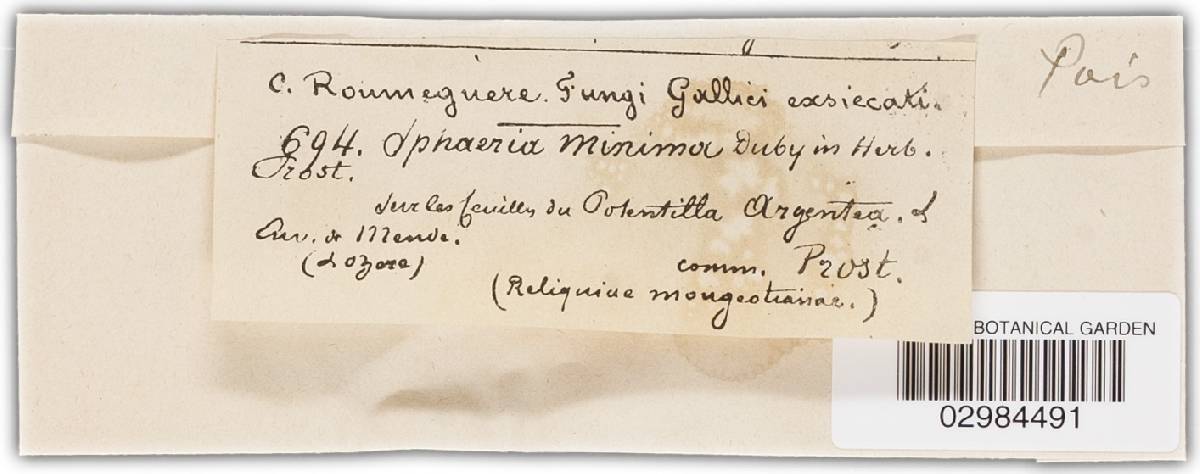 Pois
C. Roumeguère. Fungi Gallici exsiccati.
694. Sphaeria Minima Duby in Herb.
Prost.
sur les feuilles du Potentilla Argentea. L
Env. de Mende.
(Lozere)
comm. Prost.
(Reliquiae mougeotianae.)
BOTANICAL GARDEN
02984491